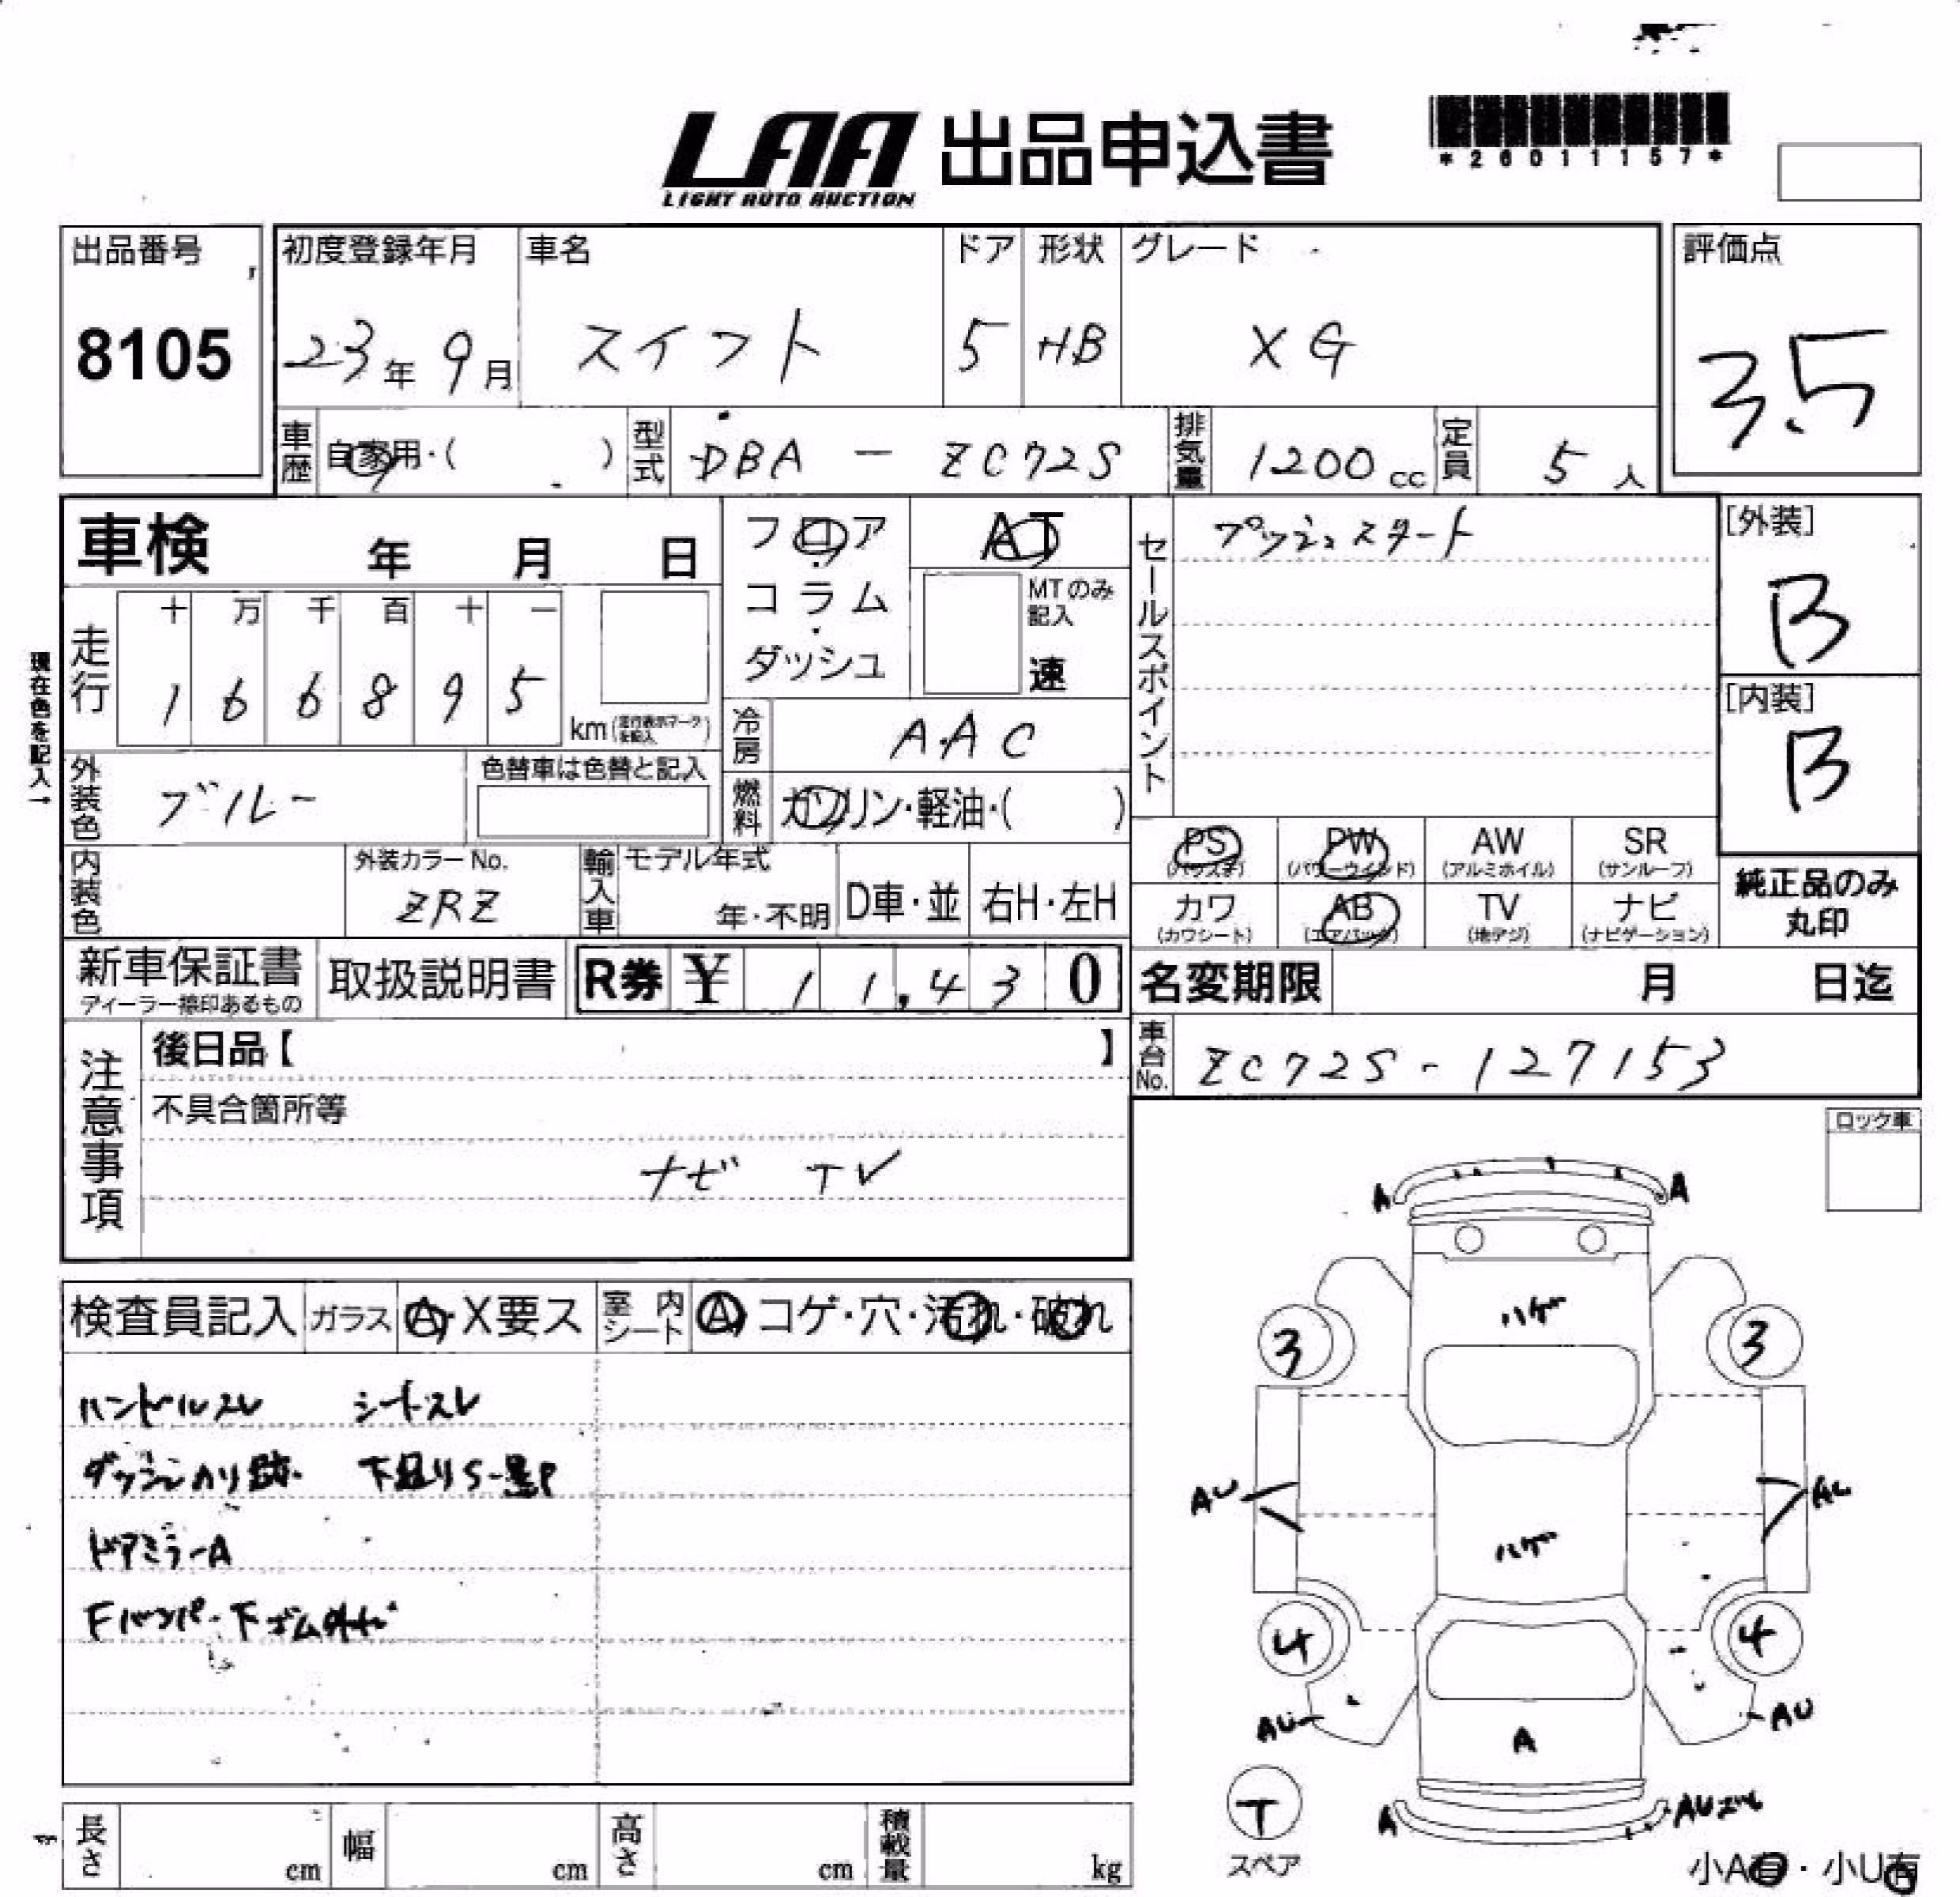 LAA 出品申込書
LIGHT AUTO AUCTION
*26011157*
出品番号
8105
初度登録年月
23年 9月
車名
スイフト
ドア
5
形状
HB
グレード
XG
評価点
3.5
車歴 自家用・( )
型式 DBA - ZC72S
排気量 1200 cc
定員 5 人
車検 年 月 日
フロア・コラム・ダッシュ
AT
MTのみ記入
速
セールスポイント
プッシュスタート
[外装]
B
[内装]
B
現在色を記入→
走行
十 万 千 百 十 一
1 6 6 8 9 5
km (走行表示マークを記入)
冷房 AAC
燃料 ガソリン・軽油・( )
外装色 ブルー
色替車は色替と記入
内装色
外装カラーNo.
ZRZ
輸入車 モデル年式
年・不明
D車・並
右H・左H
PS (パワステ)
PW (パワーウインド)
AW (アルミホイル)
SR (サンルーフ)
カワ (カワシート)
AB (エアバック)
TV (地デジ)
ナビ (ナビゲーション)
純正品のみ
丸印
新車保証書
ディーラー捺印あるもの
取扱説明書
R券 ¥ 11,430
名変期限 月 日迄
車台No. ZC72S - 127153
注意事項
後日品【 】
不具合箇所等
ナビ TV
ロック車
検査員記入
ガラス A・X要ス
室内シート A・コゲ・穴・汚れ・破れ
ハンドルスレ シートスレ
ダッシュノリ跡 下廻りS-黒P
ドアミラーA
Fバンパー下ゴム外れ
A A
ハゲ
3 3
AU AU
ハゲ
4 4
AU AU
A
T
スペア
A AUズレ
小A有・小U有
長さ cm
幅 cm
高さ cm
積載量 kg